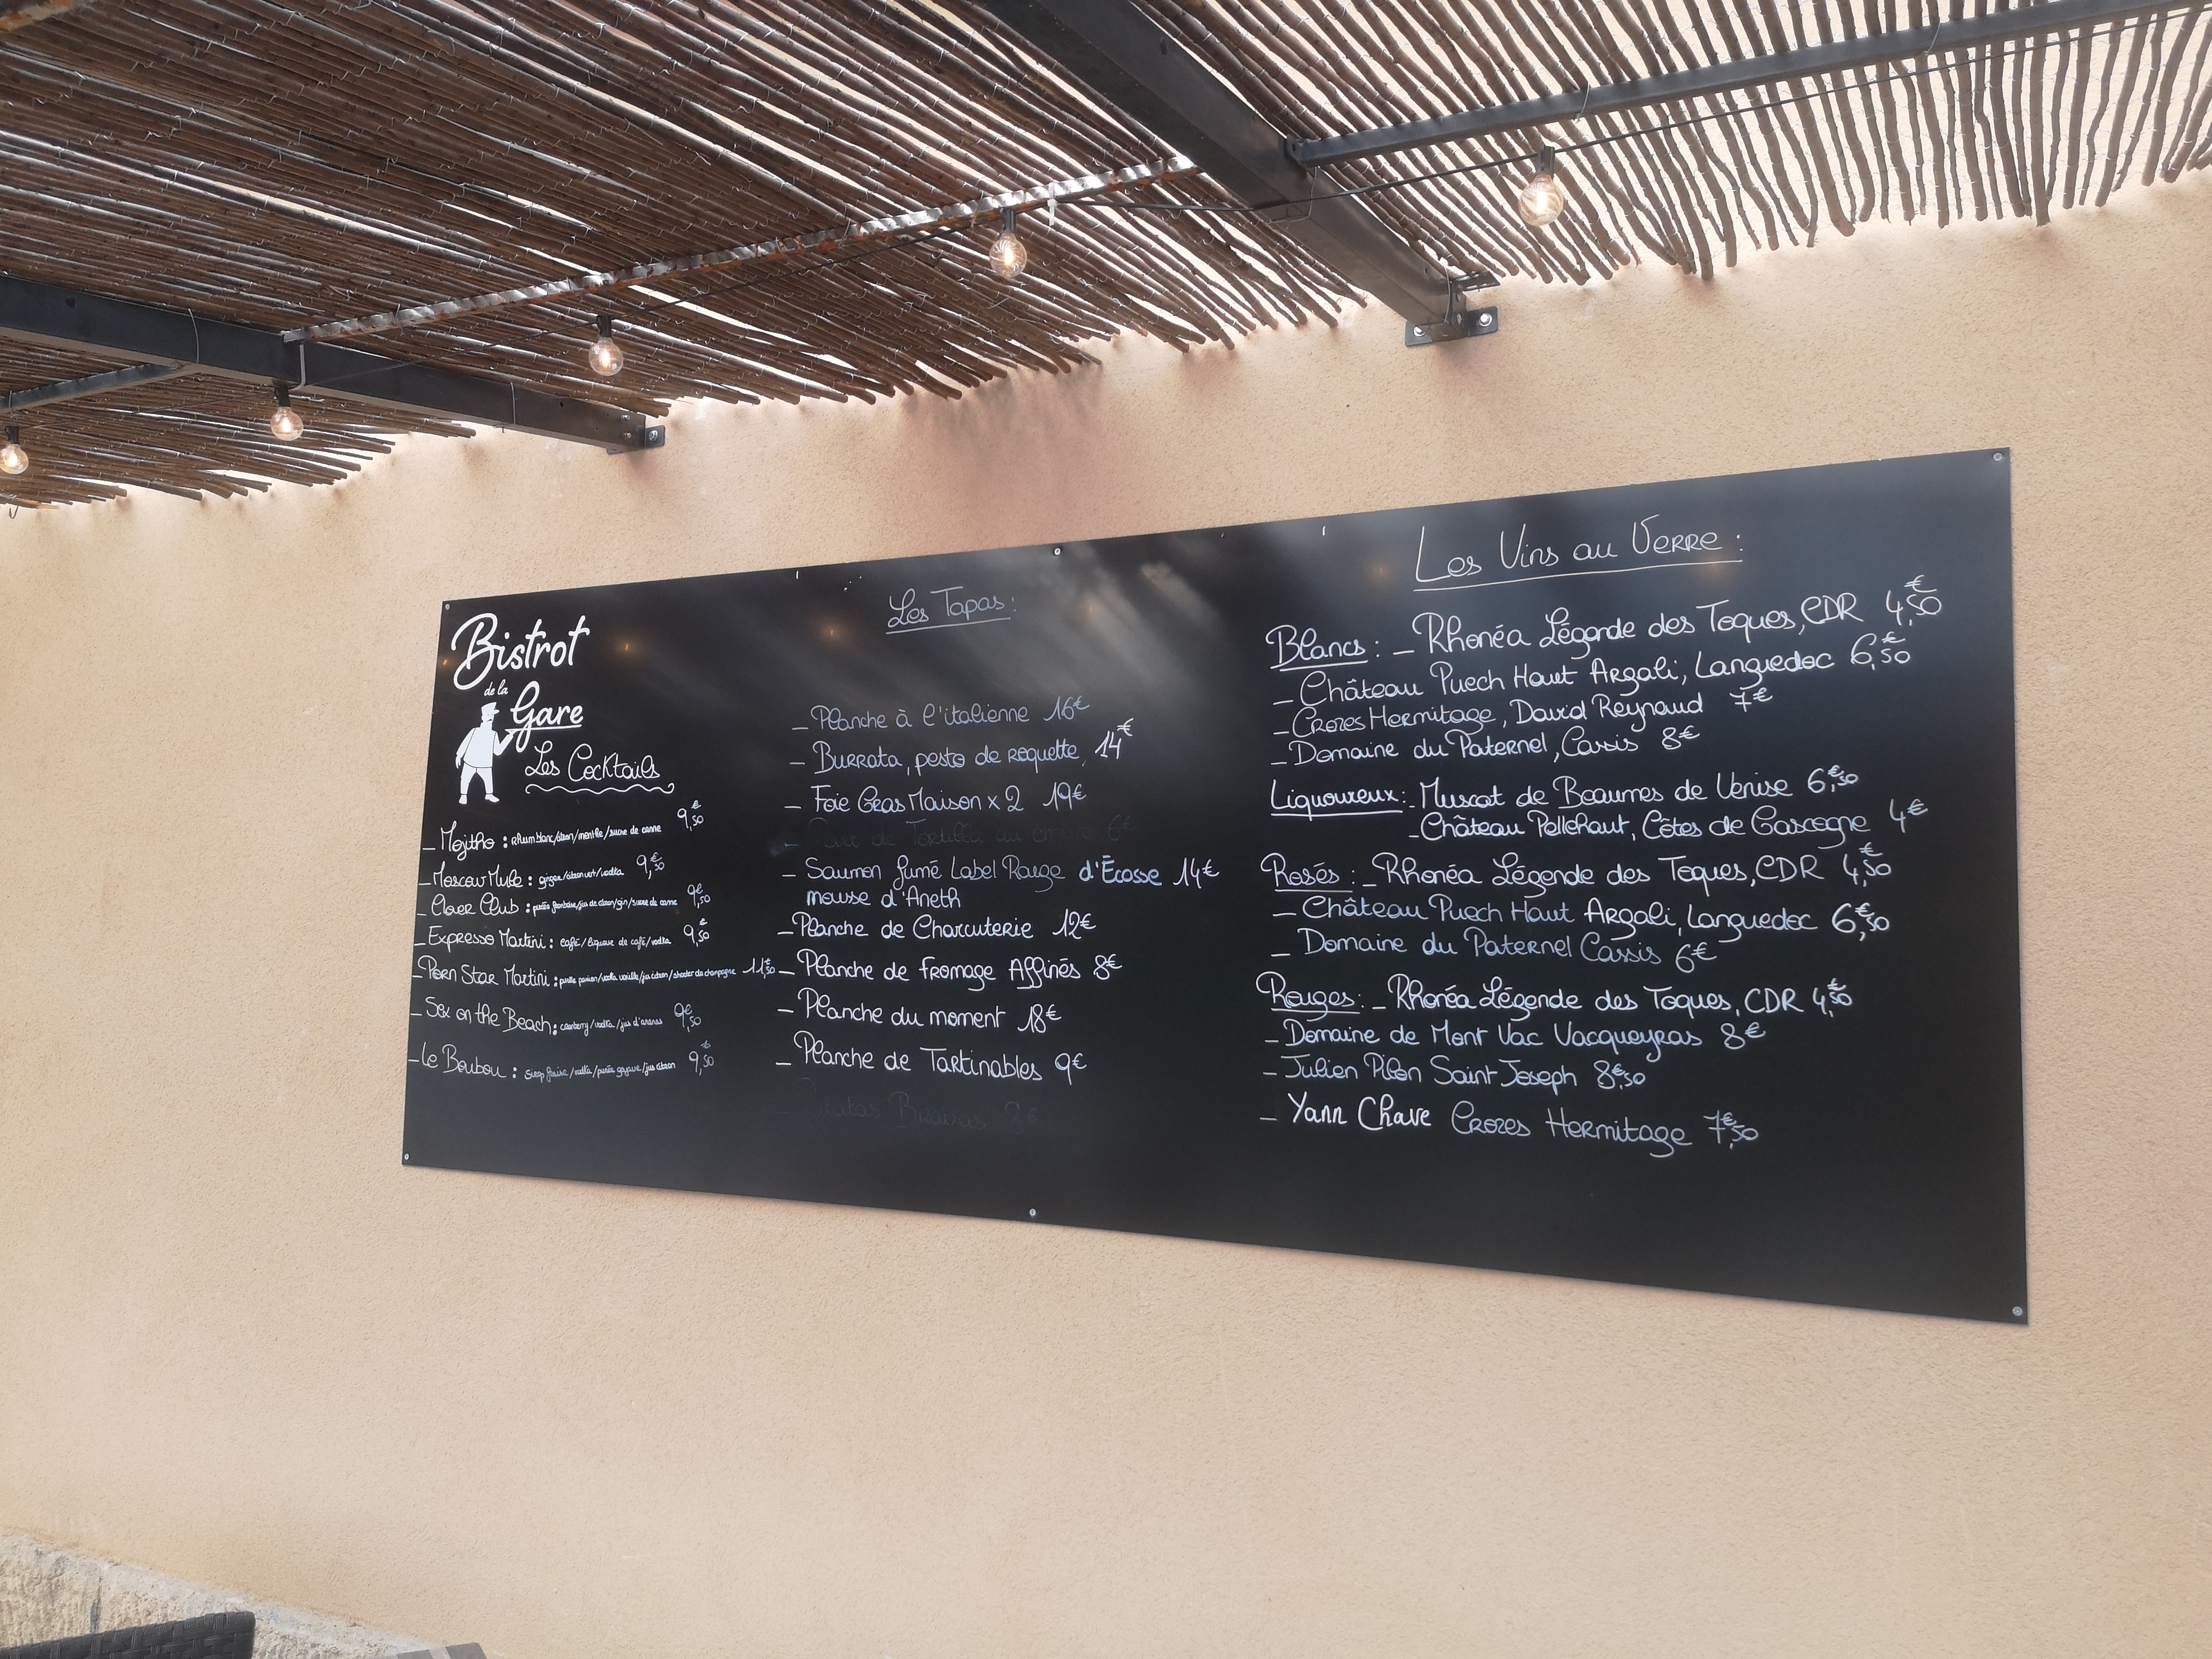 Bistrot
de la
Gare
Les Cocktails
_ Mojitho : rhum blanc/citron/menthe/sucre de canne 9,50€
_ Moscow Mule : ginger/citron vert/vodka 9,50€
_ Clover Club : purée framboise/jus de citron/gin/sucre de canne 9,50€
_ Expresso Martini : café/liqueur de café/vodka 9,50€
_ Porn Star Martini : purée passion/vodka vanille/jus citron/shooter de champagne 11,50€
_ Sex on the Beach : cranberry/vodka/jus d'ananas 9,50€
_ Le Boubou : sirop fraise/vodka/purée goyave/jus citron 9,50€
Les Tapas :
_ Planche à l'italienne 16€
_ Burrata, pesto de roquette, 14€
_ Foie Gras Maison x 2 19€
de Tortilla au chorizo 6€
_ Saumon fumé Label Rouge d'Écosse 14€
mousse d'Aneth
_ Planche de Charcuterie 12€
_ Planche de Fromage Affinés 8€
_ Planche du moment 18€
_ Planche de Tartinables 9€
_ Patatas Bravas 8€
Les Vins au Verre :
Blancs : _ Rhonéa Légende des Toques, CDR 4,50€
_ Château Puech Haut Argali, Languedoc 6,50€
_ Crozes Hermitage, David Reynaud 7€
_ Domaine du Paternel, Cassis 8€
Liquoureux : _ Muscat de Beaumes de Venise 6,50€
_ Château Pellehaut, Côtes de Gascogne 4€
Rosés : _ Rhonéa Légende des Toques, CDR 4,50€
_ Château Puech Haut Argali, Languedoc 6,50€
_ Domaine du Paternel Cassis 6€
Rouges : _ Rhonéa Légende des Toques, CDR 4,50€
_ Domaine de Mont Vac Vacqueyras 8€
_ Julien Pilon Saint Joseph 8,50€
_ Yann Chave Crozes Hermitage 7,50€